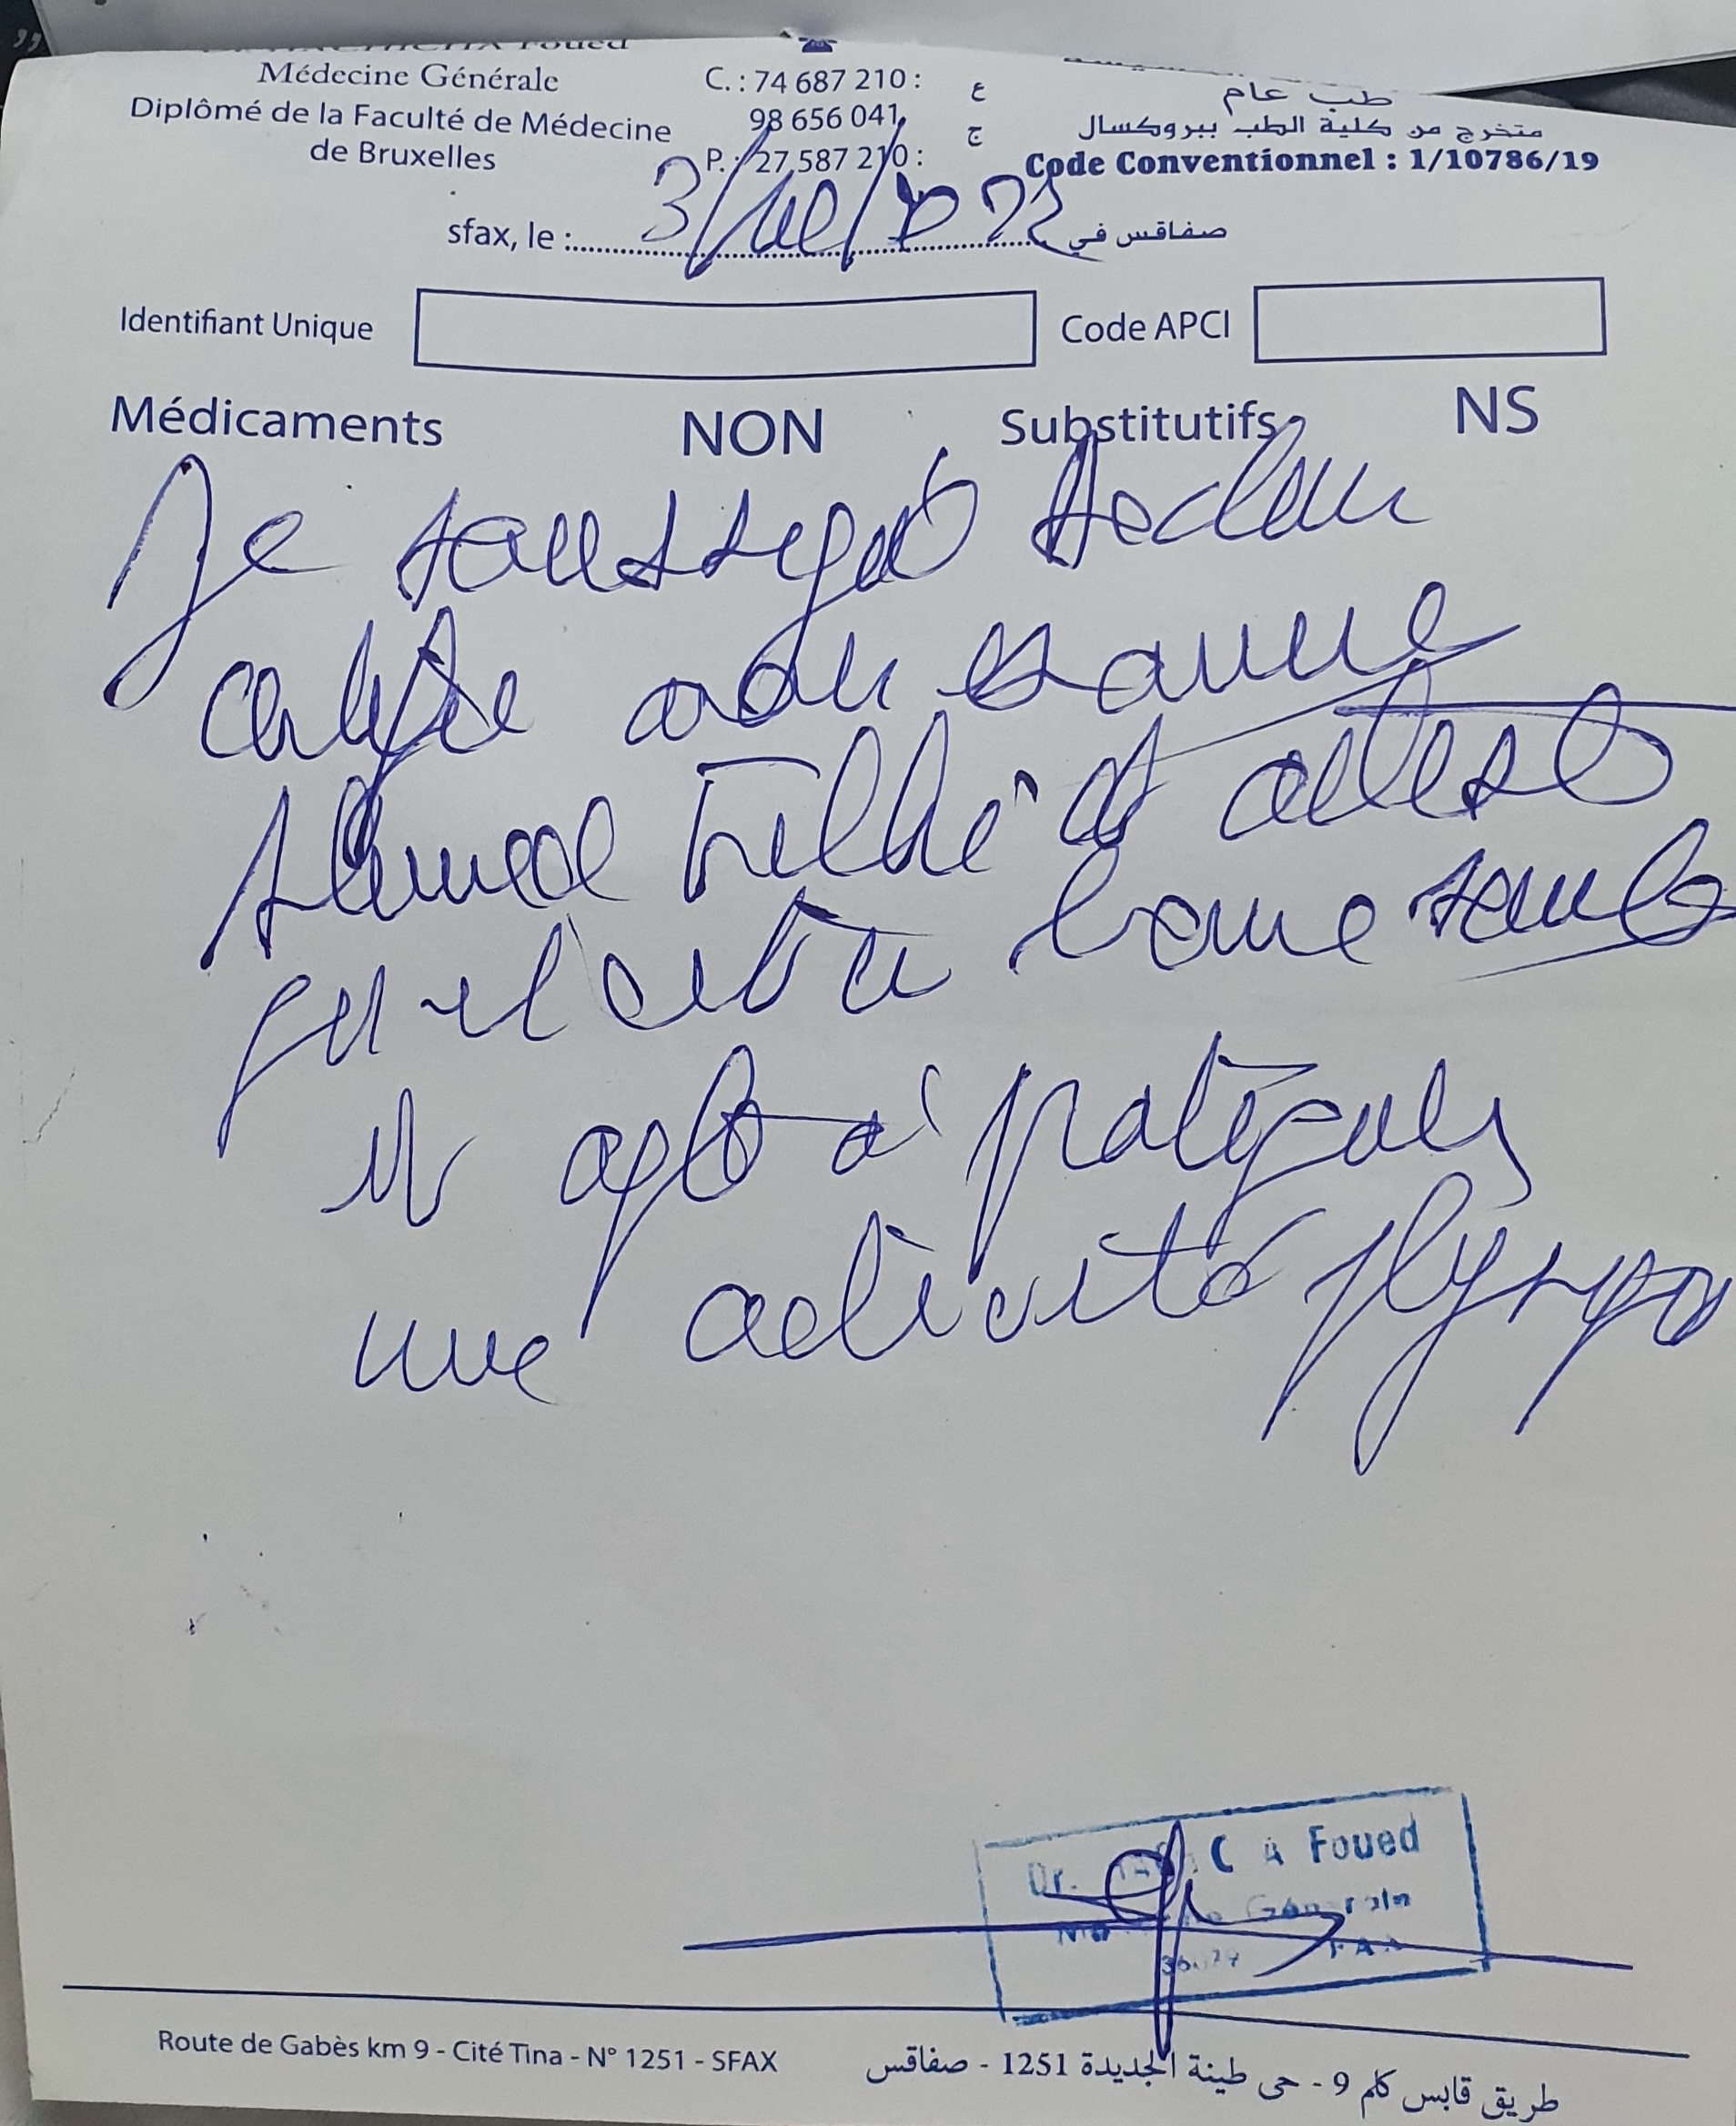 Foued
Médecine Générale
Diplômé de la Faculté de Médecine
de Bruxelles
C. : 74 687 210 : ع
98 656 041 ج
P. : 27 587 210 :
طب عام
متخرج من كلية الطب ببروكسال
Code Conventionnel : 1/10786/19
sfax, le : 3/10/2022 صفاقس في
Identifiant Unique
Code APCI
Médicaments NON Substitutifs NS
Je soussigné Docteur
certifie avoir examiné
Ahmed et atteste
qu'il est en bonne santé
et apte à pratiquer
une activité physique
Dr. Foued
Générale
Route de Gabès km 9 - Cité Tina - N° 1251 - SFAX
طريق قابس كلم 9 - حي طينة الجديدة 1251 - صفاقس